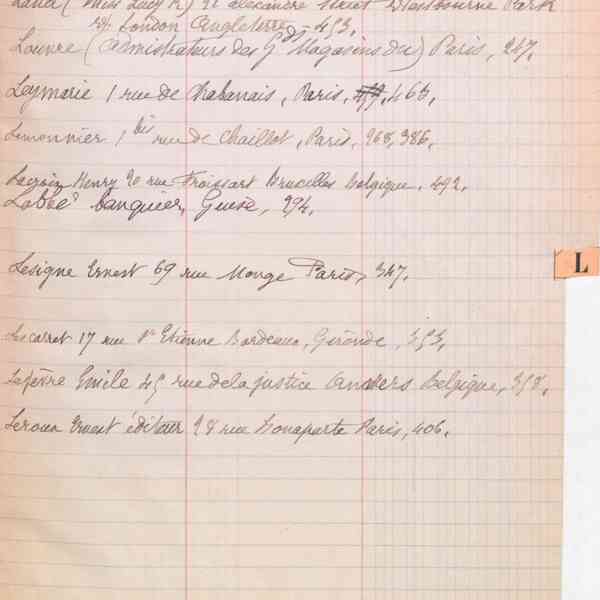 (Miss Lucy R) 21 alexandre Street Westbourne Park
London Angleterre, 453.
Louvre (administrateurs des Gds Magasins du) Paris, 247.
Leymarie 1 rue de Chabanais, Paris, 466.
Lemonnier 1 bis rue de Chaillot, Paris, 268, 386.
Lacroix Henry 20 rue Froissart Bruxelles Belgique, 492.
Labbé banquier, Guise, 294.
Lesigne Ernest 69 rue Monge Paris, 347.
L
Lescarret 17 rue St Etienne Bordeaux, Gironde, 353.
Lefèvre Emile 45 rue de la justice Anvers Belgique, 358.
Leroux Ernest éditeur 28 rue Bonaparte Paris, 406.